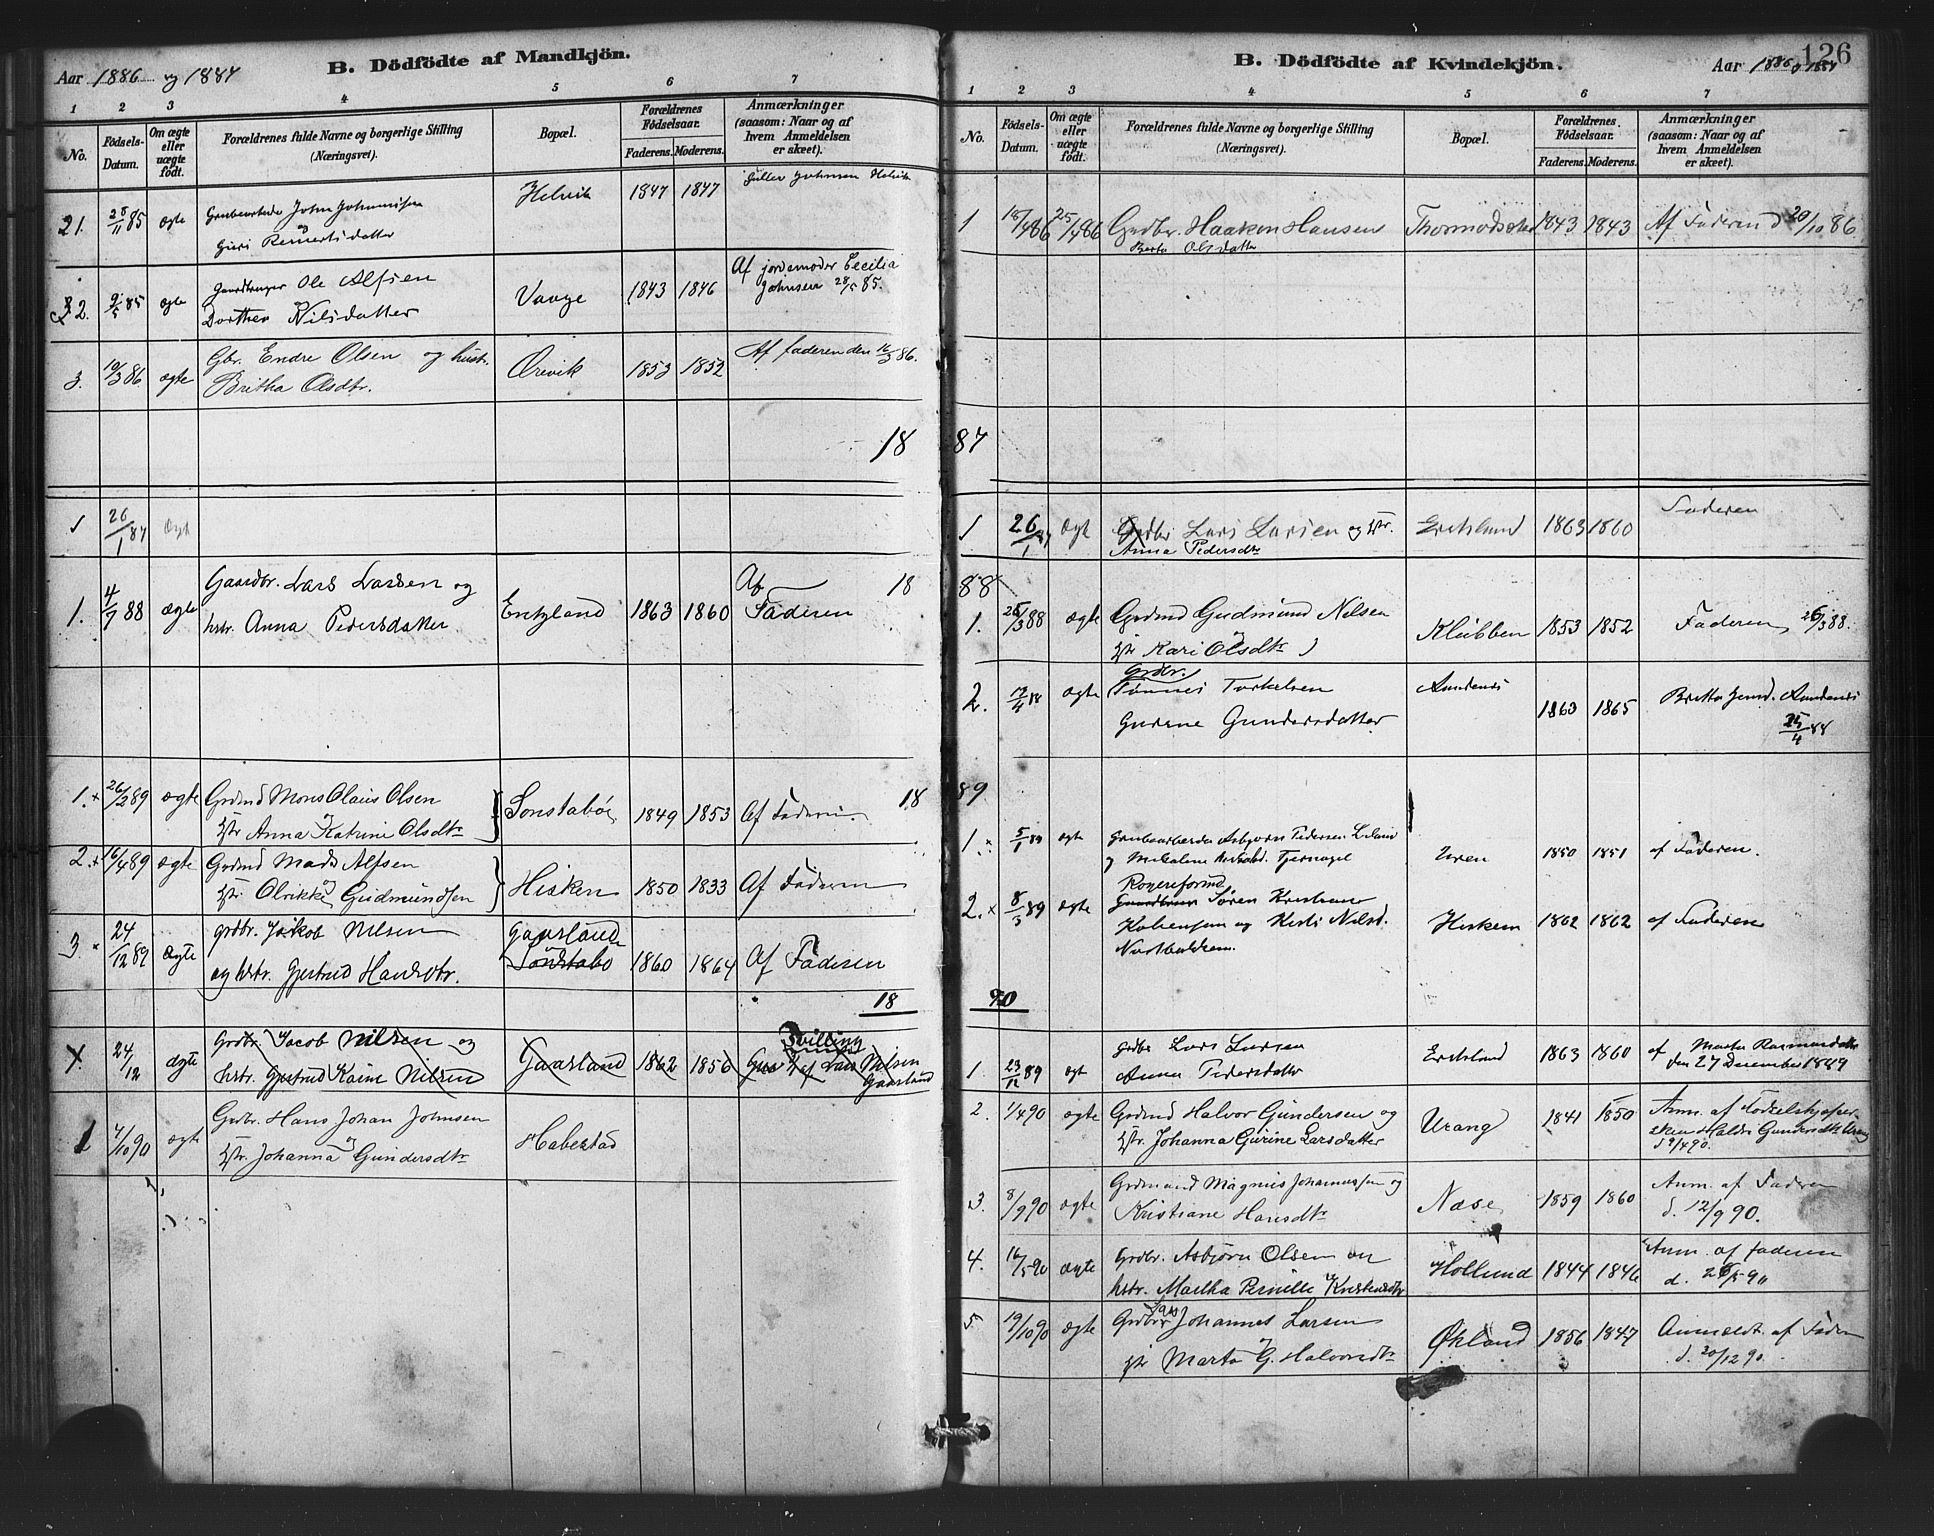 Aar 1886 og 1887
B. Dödfödte af Mandkjön.
1 2 3 4 5 6 7
No.
Födsels-Datum.
Om ægte eller uægte födt.
Forældrenes fulde Navne og borgerlige Stilling
(Næringsvei).
Bopæl.
Forældrenes Födselsaar.
Faderens. Moderens.
Anmærkninger
(saasom: Naar og af
hvem Anmeldelsen
er skeet).
21. 25/11 85 ægte John Johannissen Helvik 1847 1847 Johnsen Helvik
Guri Reinertsdatter
2. 9/5 85 ægte Ole Alfsen Vaage 1843 1846 Af jordemoder Cecilia
Dorthea Nilsdatter Johnsen 28/5 85.
3. 10/3 86 ægte Gbr. Endre Olsen og hustr. Ørevik 1853 1852 Af faderen den 16/3 86.
Britha Olsdtr.
18
1 26/1 87 Ægt
18
1. 4/7 88 ægte Gaardbr. Lars Larsen og Entzland 1863 1860 Af Faderen
hstr. Anna Pedersdatter
18
1. x 26/2 89 ægte Grdmd Mons Olaus Olsen Sonstabø 1849 1853 Af Faderen
Hstr Anna Katrine Olsdtr
2. x 16/4 89 ægte Grdmd Mads Alfsen Hisken 1850 1833 Af Faderen
Hstr Olrikke Gudmundsen
3 x 24/12 89 Ægte grdbr. Jakob Nilsen Gaasland
og hstr. Gjertrud Hansdtr. Sønstabø 1860 1864 Af Faderen
18
24/12 ægte Grdbr. Jacob Nilsen og Gaasland 1862 1856 Tvilling
hstr. Gjertrud Karine Nilsen Af Lars Nilsen
Gaasland
1 4/10 90 ægte Grdbr. Hans Johan Johnsen Habestad
Hstr. Johanna Gundersdtr
B. Dödfödte af Kvindekjön.
Aar 1886 og 1887
126
1 2 3 4 5 6 7
No.
Födsels-Datum.
Om ægte eller uægte födt.
Forældrenes fulde Navne og borgerlige Stilling
(Næringsvei).
Bopæl.
Forældrenes Födselsaar.
Faderens. Moderens.
Anmærkninger
(saasom: Naar og af
hvem Anmeldelsen
er skeet).
1 18/4 86 25/4 86 Grdbr. Haaken Hansen 1843 1843 Af Faderen d 20/10 86
Berta Olsdatter
87
1 26/1 87 ægt Grdbr Lars Larsen og Hstr. Eriksland 1863 1860 Faderen
Anna Pedersdtr
88
1. 25/3 88 ægte Grdmd Gudmund Nilsen Klubben 1853 1852 Faderen 26/3 88.
Hstr Kari Olsdtr
2. 17/4 88 ægte Grdbr.
Tønnes Torkelsen 1863 1865
Gurine Gundersdatter 25/4 88
89
1. x 5/1 89 ægte Grubearbeider Asbjørn Pedersen Uren 1850 1851 af Faderen.
2. x 8/3 89 ægte Søren Kristian Hisken 1862 1862 af Faderen
og Kirsti Nilsd.
90
1. 23/12 89 ægt Grdbr Lars Larsen Eriksland 1863 1860 af Marta Rasmusdatter
Anna Pedersdatter den 27 December 1889
2. 1/4 90 ægte Grdmd Halvor Gundersen og Urang 1841 1850 Anm. af
Hstr. Johanna Gurine Larsdatter Gundersdtr Urang
d 9/4 90.
3. 8/9 90 ægte Grdmand Magnus Johannessen og Næse 1859 1860 Anm. af Faderen
Kristiane Hansdtr d. 12/9 90.
4. 16/5 90 ægte Grdbr. Asbjørn Olsen Hollund 1844 1846 Anm. af faderen
hstr. Martha Pernille d. 26/5 90
5 19/10 90 ægte Grdbr Johannes Larsen Økland 1856 1847 Anmeldt af Fader
Hstr Marta G. Halvorsdtr d. 30/12 90.